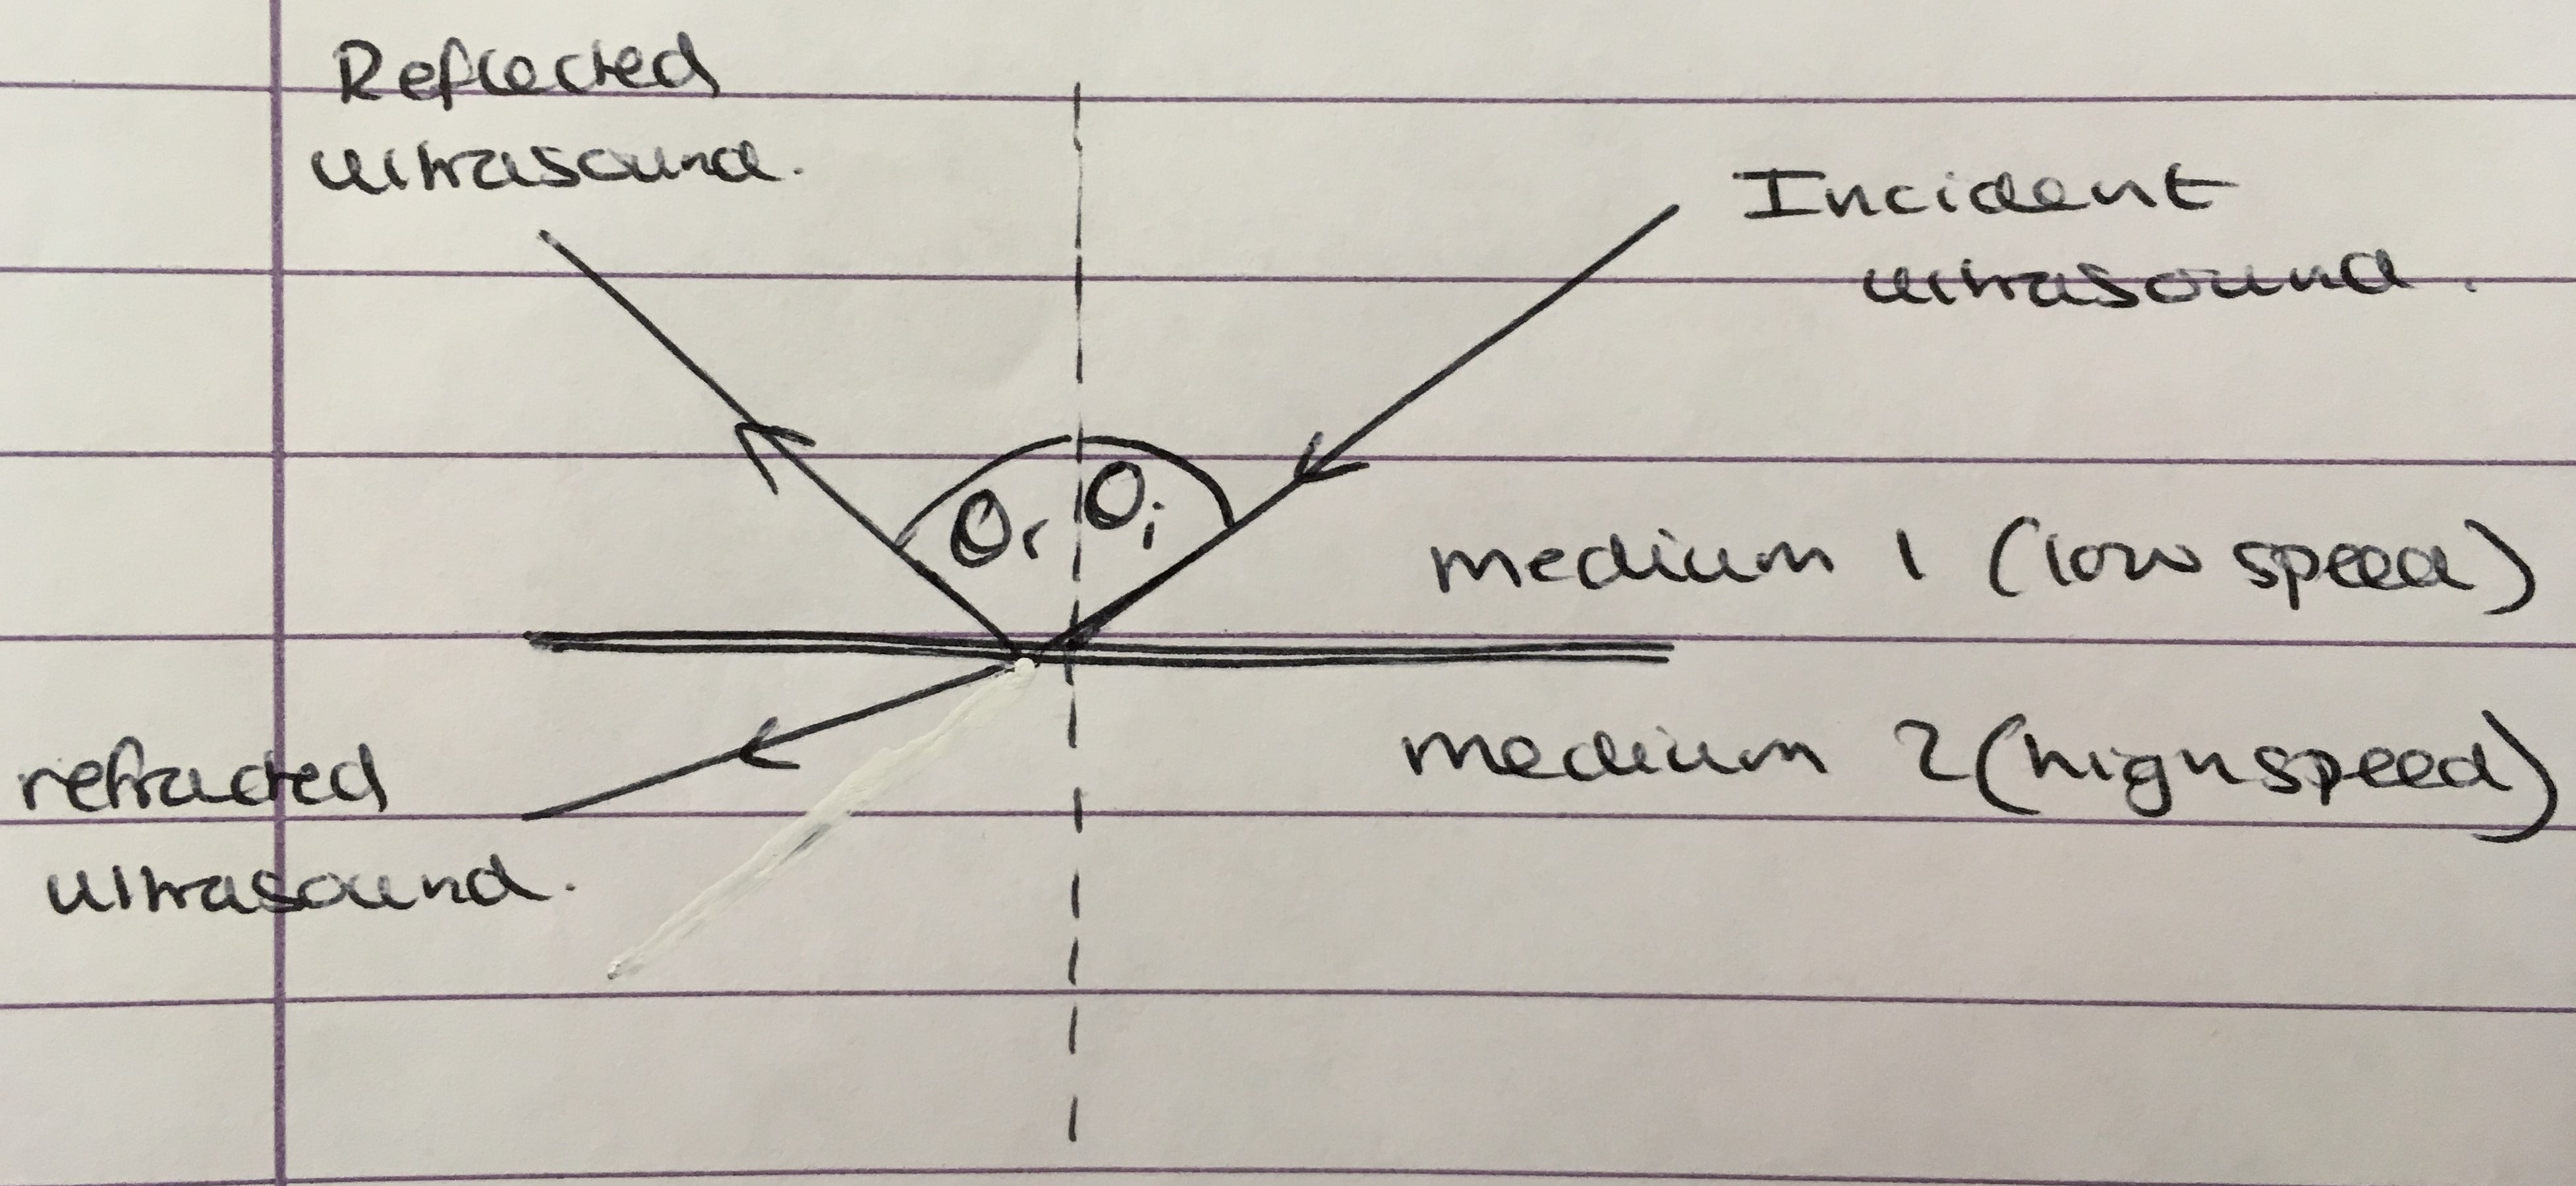 Reflected
ultrasound.
Incident
ultrasound.
θr θi
medium 1 (low speed)
medium 2 (high speed)
refracted
ultrasound.